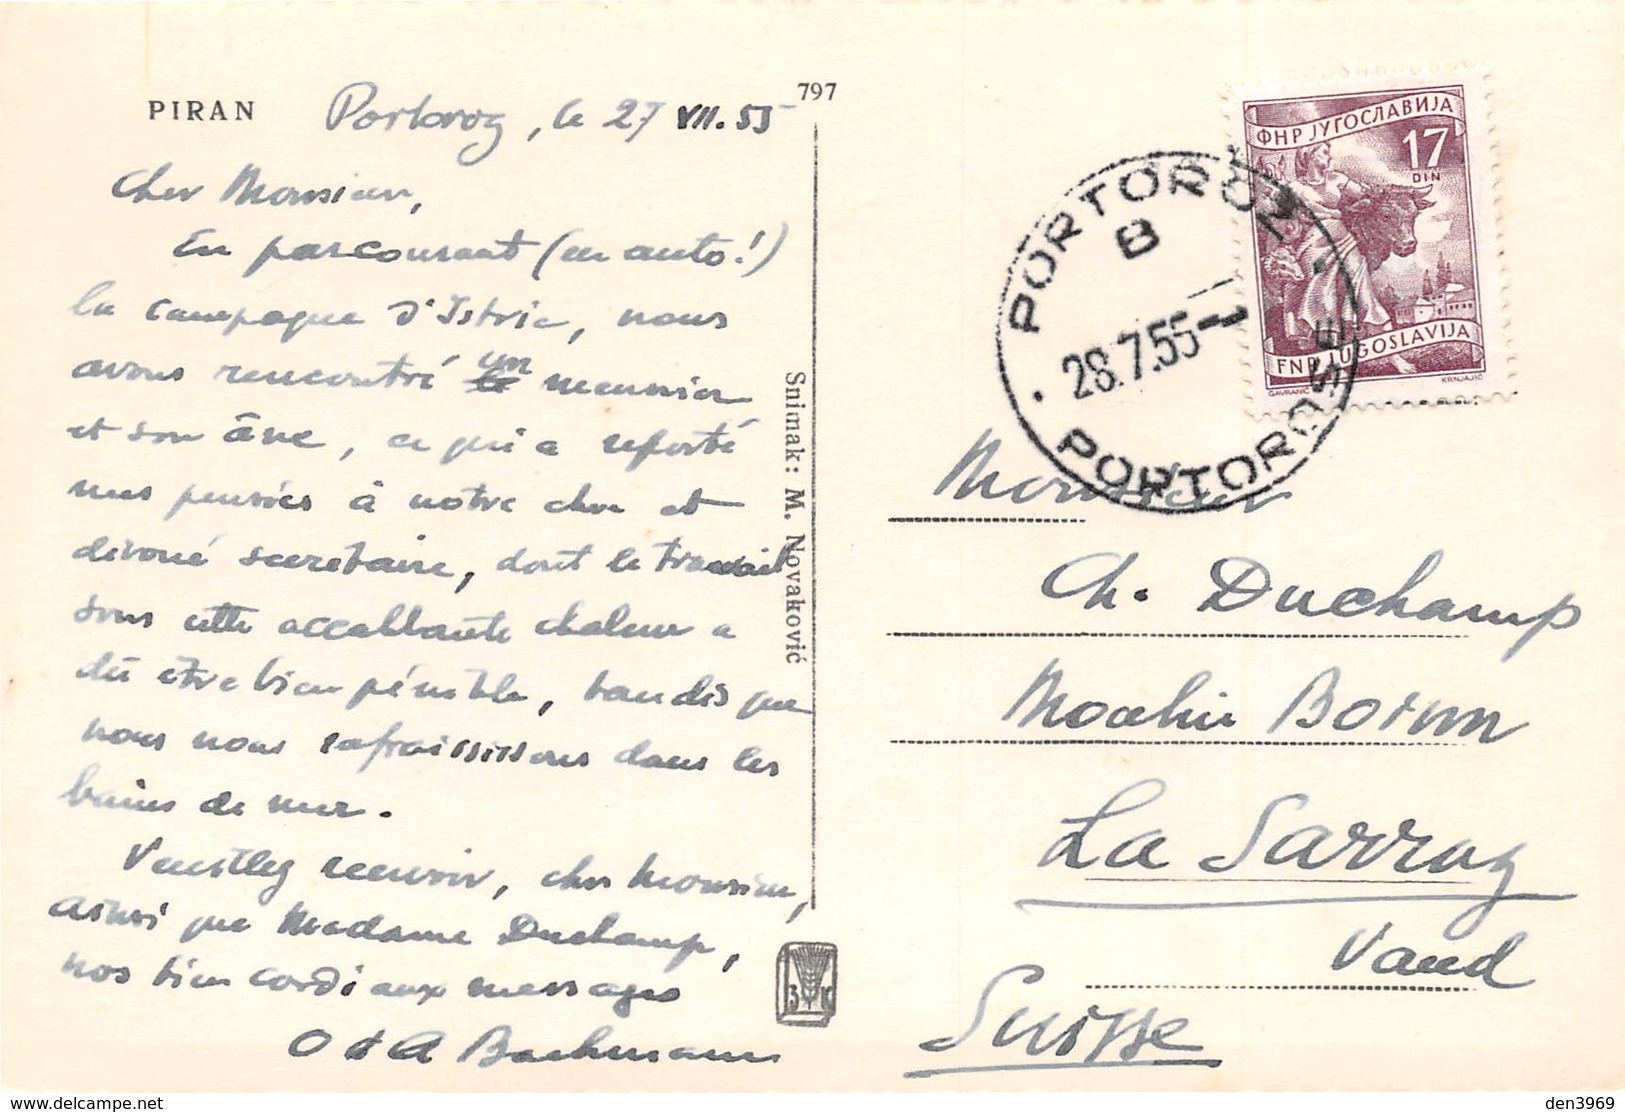 PIRAN
797
Portoroz, le 27 VII. 55
Cher Monsieur,
En parcourant (en auto!)
la campagne d'Istrie, nous
avons rencontré un meunier
et son âne, ce qui a reporté
nos pensées à notre cher et
dévoué secrétaire, dont le travail
sous cette accablante chaleur a
dû être bien pénible, tandis que
nous nous rafraissisons dans les
bains de mer.
Veuillez recevoir, cher Monsieur,
ainsi que Madame Duchamp,
nos bien cordiaux messages
O et A Bachmann
Snimak: M. Novaković
3 K
ФНР ЈУГОСЛАВИЈА
17
DIN
FNR JUGOSLAVIJA
GAVRANIĆ
KRNJAJIĆ
PORTOROŽ
B
28.7.55
PORTOROSE
Monsieur
Ch. Duchamp
La Sarraz
Vaud
Suisse
www.delcampe.net
den3969